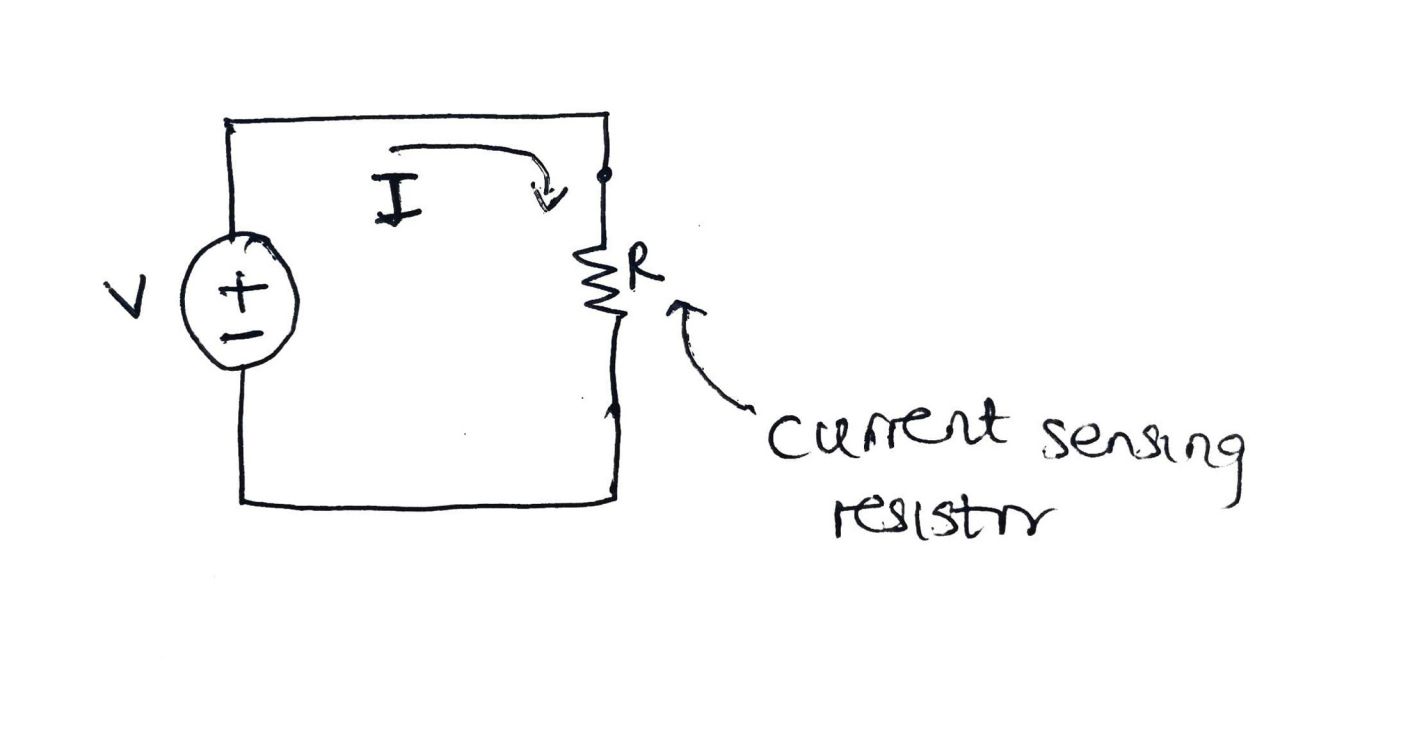 I
V
+
−
R
current sensing
resistor